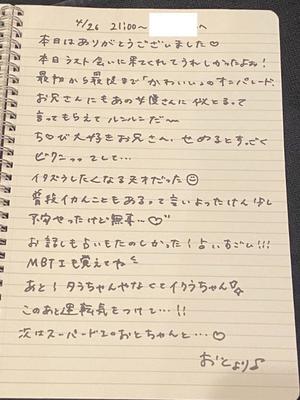 4/26 21:00〜 へ
本日はありがとうございました♡
本日ラスト会いに来てくれてうれしかったよみ!
最初から最後まで「かわいい」のオンパレード、
お兄さんにもあの女優さんに似とるって
言ってもらえてルンルンだ〜
ち♡び大好きお兄さん、せめるとすっごく
ビクンってして…
イタズラしたくなる天才だった☺
普段イカんこともあるって言いよったけん少し
不安やったけど無事…♡
お話しも占いもたのしかった!占いすごい!!!
MBTIも覚えてね
あと!タラちゃんやなくてイクラちゃん
このあと運転気をつけて…!!
次はスーパードエロおとちゃんと…♡
おとより♪